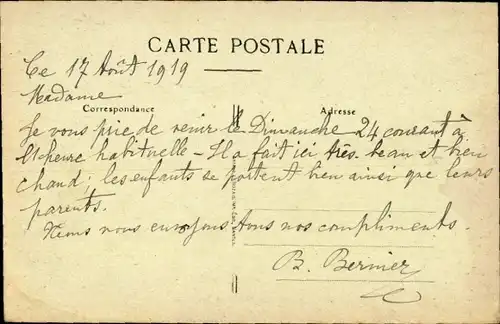 CARTE POSTALE
Ce 17 Août 1919
Madame
Correspondance Adresse
Je vous prie de venir le Dimanche 24 courant à
l'heure habituelle - Il a fait ici très beau et bien
chaud; les enfants se portent bien ainsi que leurs
parents.
Nous vous envoyons tous nos compliments.
B. Bernier